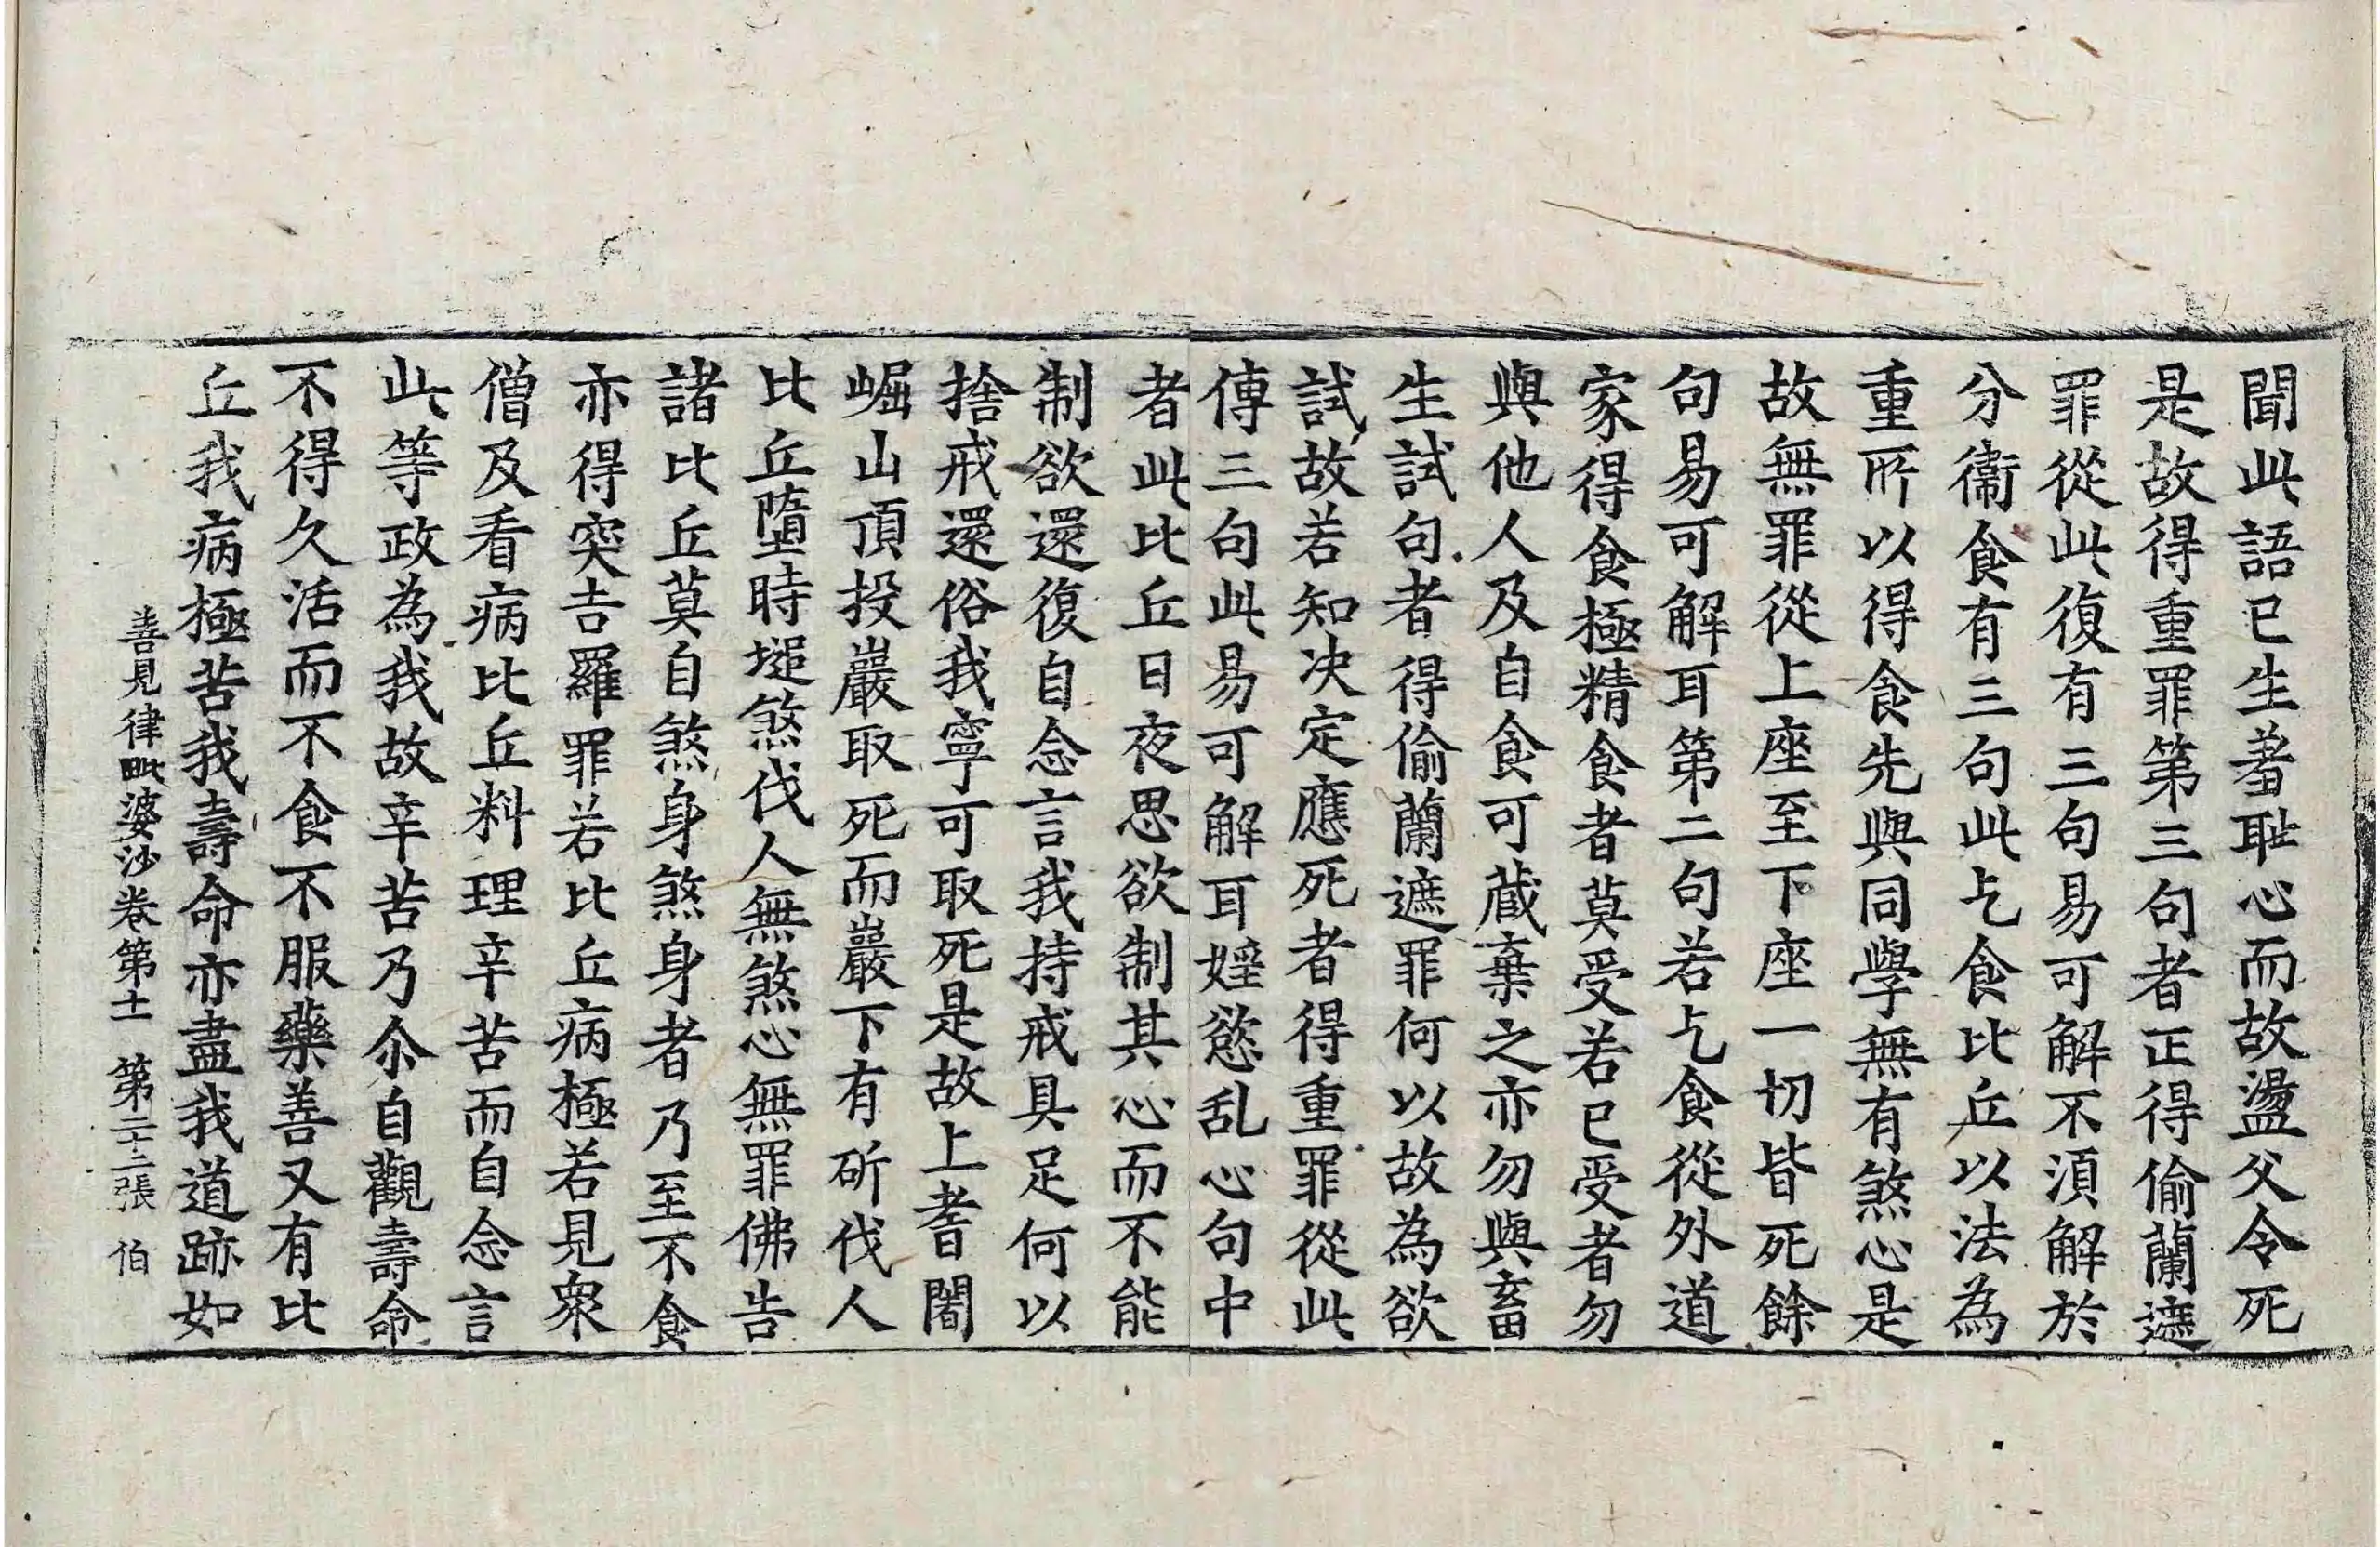 聞此語已生著恥心而故盪父令死
是故得重罪第三句者正得偷蘭遮
罪從此復有三句易可解不湏解於
分衞食有三句此乞食比丘以法為
重所以得食先與同學無有煞心是
故無罪從上座至下座一切皆死餘
句易可解耳第二句若乞食從外道
家得食極精食者莫受若已受者勿
與他人及自食可蔵棄之亦勿與畜
生試句者得偷蘭遮罪何以故為欲
試故若知决定應死者得重罪從此
傳三句此易可解耳婬慾乱心句中
者此比丘日夜思欲制其心而不能
制欲還復自念言我持戒具足何以
捨戒還俗我寧可取死是故上耆闍
崛山頂投巖取死而巖下有斫伐人
比丘墮時搥煞伐人無煞心無罪佛告
諸比丘莫自煞身煞身者乃至不食
亦得突吉羅罪若比丘病極若見衆
僧及看病比丘料理辛苦而自念言
此等政為我故辛苦乃尒自觀壽命
不得久活而不食不服藥善又有比
丘我病極苦我壽命亦盡我道跡如
善見律毗婆沙卷第十一 第二十二張 伯